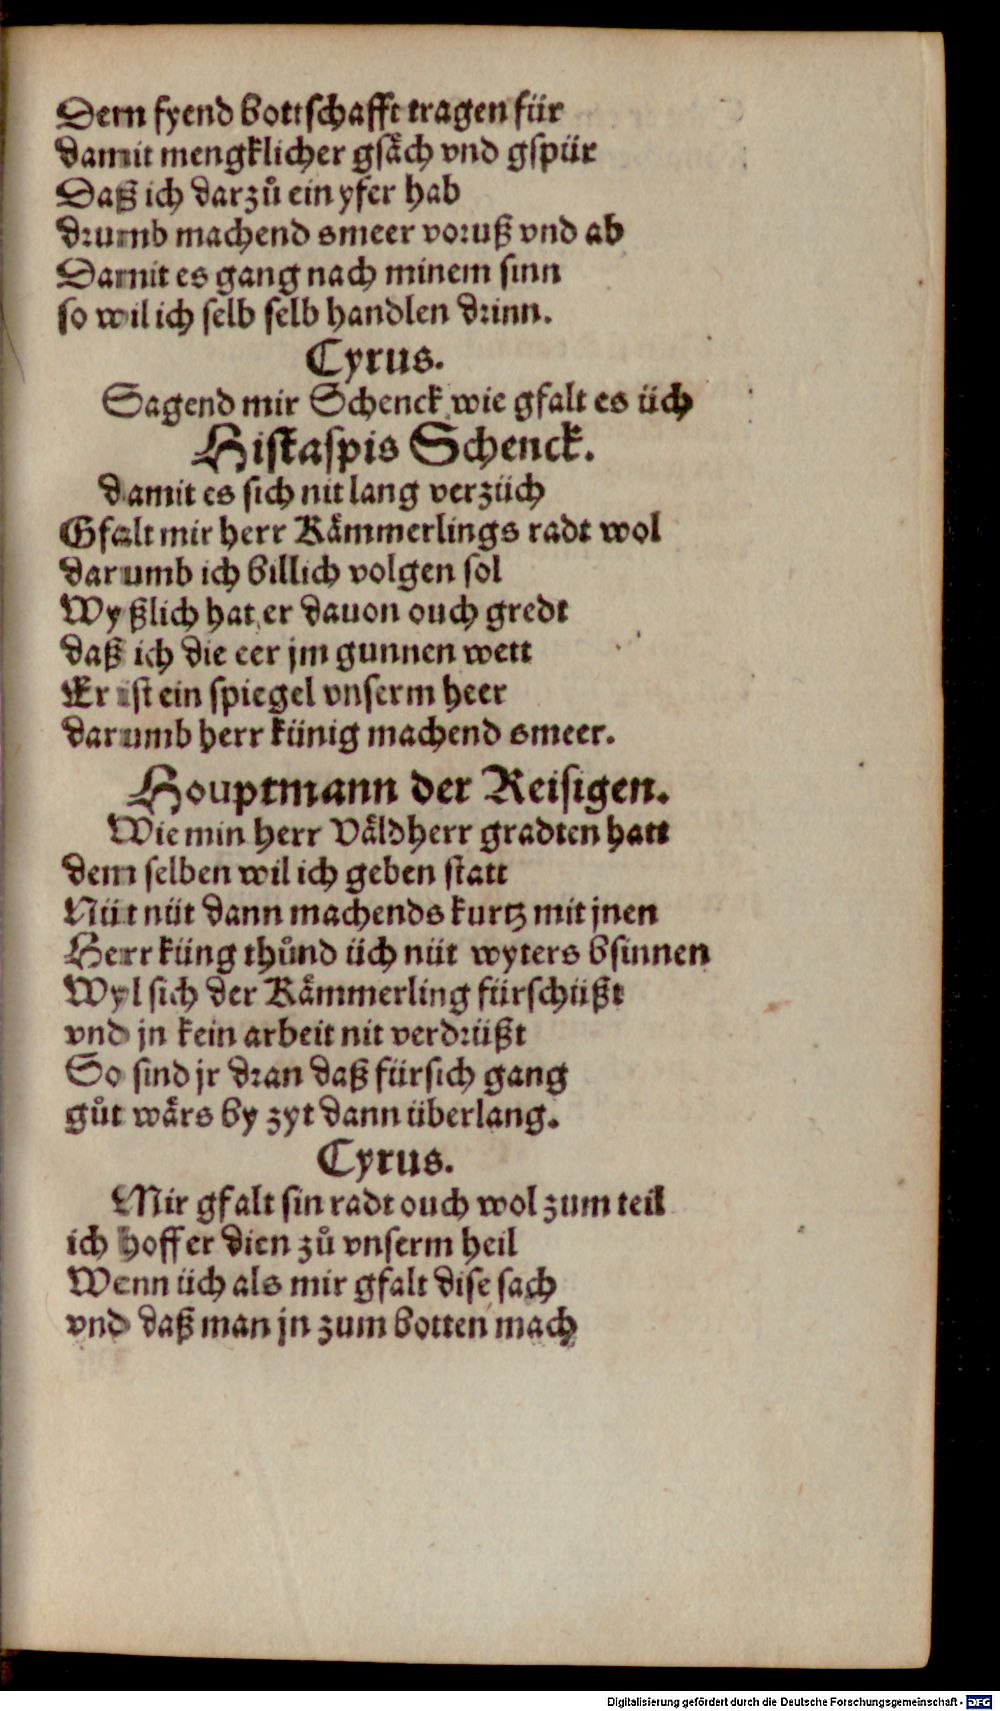 Dem fyend bottschafft tragen für
damit mengklicher gsäch vnd gspür
Daß ich darzů ein yfer hab
drumb machend smeer voruß vnd ab
Damit es gang nach minem sinn
so wil ich selb selb handlen drinn.
Cyrus.
Sagend mir Schenck wie gfalt es üch
Histaspis Schenck.
damit es sich nit lang verzüch
Gfalt mir herr Kämmerlings radt wol
darumb ich billich volgen sol
Wyßlich hat er dauon ouch gredt
daß ich die eer jm gunnen wett
Er ist ein spiegel vnserm heer
darumb herr künig machend smeer.
Houptmann der Reisigen.
Wie min herr Väldherr gradten hatt
dem selben wil ich geben statt
Nüt nüt dann machends kurtz mit jnen
Herr küng thůnd üch nüt wyters bsinnen
Wyl sich der Kämmerling fürschüßt
vnd jn kein arbeit nit verdrüßt
So sind jr dran daß fürsich gang
gůt wärs by zyt dann überlang.
Cyrus.
Mir gfalt sin radt ouch wol zum teil
ich hoff er dien zů vnserm heil
Wenn üch als mir gfalt dise sach
vnd daß man jn zum botten mach
Digitalisierung gefördert durch die Deutsche Forschungsgemeinschaft - DFG